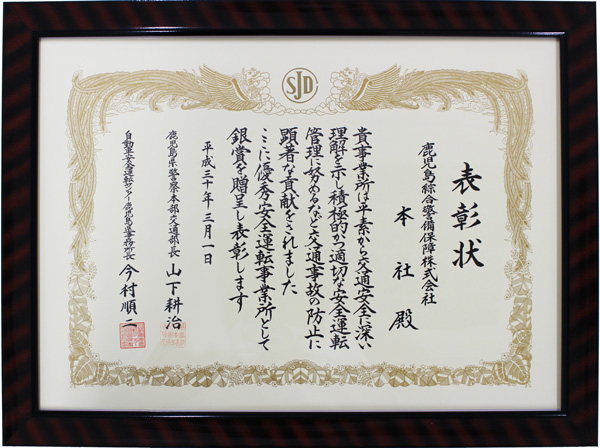 SJDC
表彰状
鹿児島綜合警備保障株式会社
本社殿
貴事業所は平素から交通安全に深い
理解を示し積極的かつ適切な安全運転
管理に努めるなど交通事故の防止に
顕著な貢献をされました
ここに優秀安全運転事業所として
銀賞を贈呈し表彰します
平成三十年三月一日
鹿児島県警察本部交通部長 山下耕治
自動車安全運転センター鹿児島県事務所長 今村順二